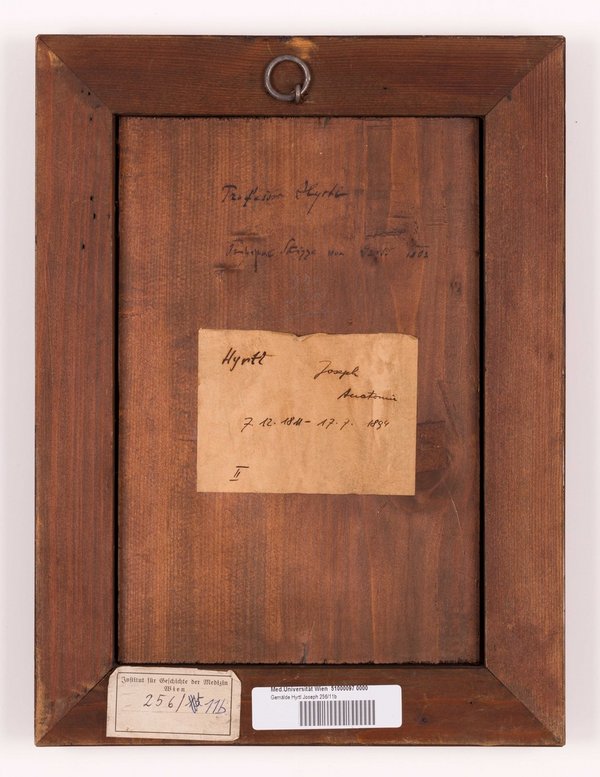 Professor Hyrtl
Skizze von
Hyrtl Joseph
Anatomie
7. 12. 1811 - 17. 7. 1894
II
Institut für Geschichte der Medizin
Wien
256/ 11b
Med.Universität Wien 51000097 0000
Gemälde Hyrtl Joseph 256/11b